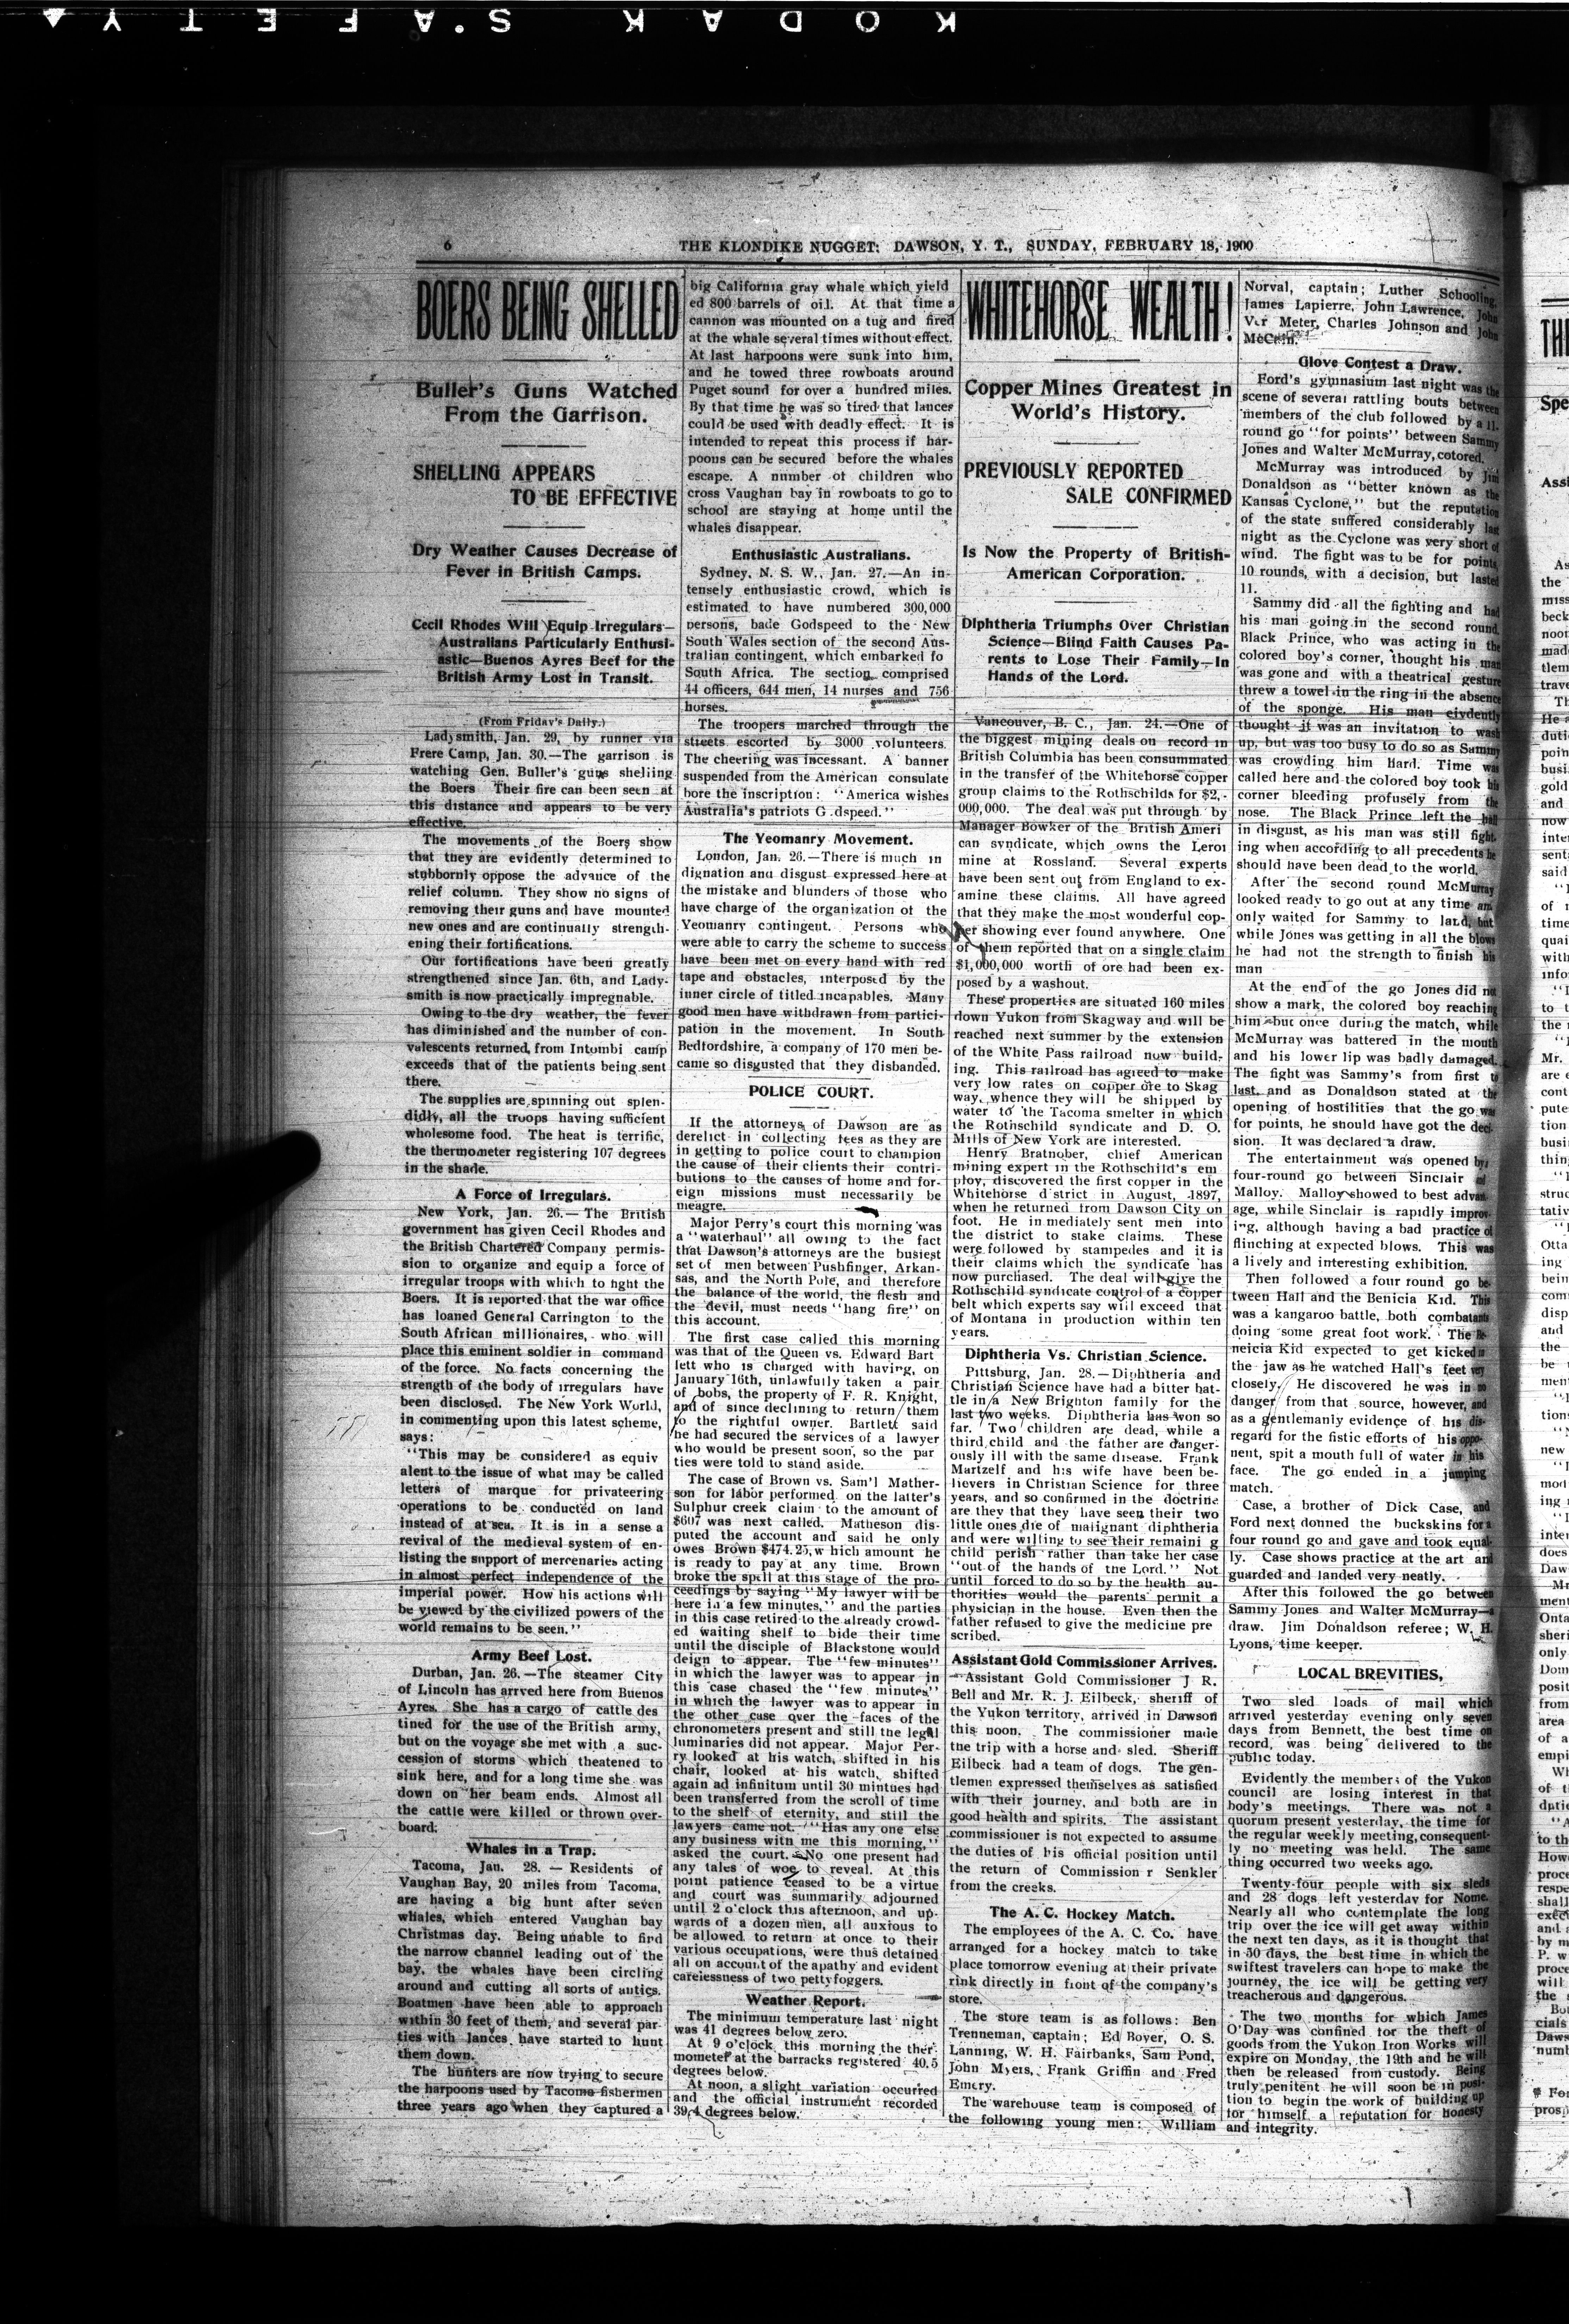 KODAK SAFETY
6
THE KLONDIKE NUGGET: DAWSON, Y. T., SUNDAY, FEBRUARY 18, 1900
BOERS BEING SHELLED
Buller's Guns Watched
From the Garrison.
SHELLING APPEARS
TO BE EFFECTIVE
Dry Weather Causes Decrease of
Fever in British Camps.
Cecil Rhodes Will Equip Irregulars—
Australians Particularly Enthusi-
astic—Buenos Ayres Beef for the
British Army Lost in Transit.
(From Friday's Daily.)
Ladysmith, Jan. 29, by runner via
Frere Camp, Jan. 30.—The garrison is
watching Gen. Buller's guns shelling
the Boers Their fire can been seen at
this distance and appears to be very
effective.
The movements of the Boers show
that they are evidently determined to
stubbornly oppose the advance of the
relief column. They show no signs of
removing their guns and have mounted
new ones and are continually strength-
ening their fortifications.
Our fortifications have been greatly
strengthened since Jan. 6th, and Lady-
smith is now practically impregnable.
Owing to the dry weather, the fever
has diminished and the number of con-
valescents returned, from Intombi camp
exceeds that of the patients being sent
there.
The supplies are spinning out splen-
didly, all the troops having sufficient
wholesome food. The heat is terrific,
the thermometer registering 107 degrees
in the shade.
A Force of Irregulars.
New York, Jan. 26.—The British
government has given Cecil Rhodes and
the British Chartered Company permis-
sion to organize and equip a force of
irregular troops with which to fight the
Boers. It is reported that the war office
has loaned General Carrington to the
South African millionaires, who will
place this eminent soldier in command
of the force. No facts concerning the
strength of the body of irregulars have
been disclosed. The New York World,
in commenting upon this latest scheme,
says:
"This may be considered as equiv
alent to the issue of what may be called
letters of marque for privateering
operations to be conducted on land
instead of at sea. It is in a sense a
revival of the medieval system of en-
listing the support of mercenaries acting
in almost perfect independence of the
imperial power. How his actions will
be viewed by the civilized powers of the
world remains to be seen."
Army Beef Lost.
Durban, Jan. 26.—The steamer City
of Lincoln has arrved here from Buenos
Ayres. She has a cargo of cattle des
tined for the use of the British army,
but on the voyage she met with a suc-
cession of storms which theatened to
sink here, and for a long time she was
down on her beam ends. Almost all
the cattle were killed or thrown over-
board.
Whales in a Trap.
Tacoma, Jan. 28. — Residents of
Vaughan Bay, 20 miles from Tacoma,
are having a big hunt after seven
whales, which entered Vaughan bay
Christmas day. Being unable to find
the narrow channel leading out of the
bay, the whales have been circling
around and cutting all sorts of antics.
Boatmen have been able to approach
within 30 feet of them, and several par-
ties with lances have started to hunt
them down.
The hunters are now trying to secure
the harpoons used by Tacoma fishermen
three years ago when they captured a
big California gray whale which yield
ed 800 barrels of oil. At that time a
cannon was mounted on a tug and fired
at the whale several times without effect.
At last harpoons were sunk into him,
and he towed three rowboats around
Puget sound for over a hundred miles.
By that time he was so tired that lances
could be used with deadly effect. It is
intended to repeat this process if har-
poons can be secured before the whales
escape. A number of children who
cross Vaughan bay in rowboats to go to
school are staying at home until the
whales disappear.
Enthusiastic Australians.
Sydney, N. S. W., Jan. 27.—An in-
tensely enthusiastic crowd, which is
estimated to have numbered 300,000
persons, bade Godspeed to the New
South Wales section of the second Aus-
tralian contingent, which embarked fo
South Africa. The section comprised
44 officers, 644 men, 14 nurses and 756
horses.
The troopers marched through the
streets escorted by 3000 volunteers.
The cheering was incessant. A banner
suspended from the American consulate
bore the inscription: "America wishes
Australia's patriots G dspeed."
The Yeomanry Movement.
London, Jan. 26.—There is much in
dignation and disgust expressed here at
the mistake and blunders of those who
have charge of the organization of the
Yeomanry contingent. Persons who
were able to carry the scheme to success
have been met on every hand with red
tape and obstacles, interposed by the
inner circle of titled incapables. Many
good men have withdrawn from partici-
pation in the movement. In South
Bedfordshire, a company of 170 men be-
came so disgusted that they disbanded.
POLICE COURT.
If the attorneys of Dawson are as
derelict in collecting fees as they are
in getting to police court to champion
the cause of their clients their contri-
butions to the causes of home and for-
eign missions must necessarily be
meagre.
Major Perry's court this morning was
a "waterhaul" all owing to the fact
that Dawson's attorneys are the busiest
set of men between Pushfinger, Arkan-
sas, and the North Pole, and therefore
the balance of the world, the flesh and
the devil, must needs "hang fire" on
this account.
The first case called this morning
was that of the Queen vs. Edward Bart
lett who is charged with having, on
January 16th, unlawfully taken a pair
of bobs, the property of F. R. Knight,
and of since declining to return them
to the rightful owner. Bartlett said
he had secured the services of a lawyer
who would be present soon, so the par
ties were told to stand aside.
The case of Brown vs. Sam'l Mather-
son for labor performed on the latter's
Sulphur creek claim to the amount of
$607 was next called. Matheson dis-
puted the account and said he only
owes Brown $474.25, w hich amount he
is ready to pay at any time. Brown
broke the spell at this stage of the pro-
ceedings by saying "My lawyer will be
here in a few minutes," and the parties
in this case retired to the already crowd-
ed waiting shelf to bide their time
until the disciple of Blackstone would
deign to appear. The "few minutes"
in which the lawyer was to appear in
this case chased the "few minutes"
in which the lawyer was to appear in
the other case over the faces of the
chronometers present and still the legal
luminaries did not appear. Major Per-
ry looked at his watch, shifted in his
chair, looked at his watch, shifted
again ad infinitum until 30 mintues had
been transferred from the scroll of time
to the shelf of eternity, and still the
lawyers came not. "Has any one else
any business with me this morning,"
asked the court. No one present had
any tales of woe to reveal. At this
point patience ceased to be a virtue
and court was summarily adjourned
until 2 o'clock this afternoon, and up-
wards of a dozen men, all anxious to
be allowed to return at once to their
various occupations, were thus detained
all on account of the apathy and evident
carelessness of two pettyfoggers.
Weather Report.
The minimum temperature last night
was 41 degrees below zero.
At 9 o'clock this morning the ther-
mometer at the barracks registered 40.5
degrees below.
At noon, a slight variation occurred
and the official instrument recorded
39.4 degrees below.
WHITEHORSE WEALTH!
Copper Mines Greatest in
World's History.
PREVIOUSLY REPORTED
SALE CONFIRMED
Is Now the Property of British-
American Corporation.
Diphtheria Triumphs Over Christian
Science—Blind Faith Causes Pa-
rents to Lose Their Family—In
Hands of the Lord.
Vancouver, B. C., Jan. 24.—One of
the biggest mining deals on record in
British Columbia has been consummated
in the transfer of the Whitehorse copper
group claims to the Rothschilds for $2,-
000,000. The deal was put through by
Manager Bowker of the British Ameri
can syndicate, which owns the Leroi
mine at Rossland. Several experts
have been sent out from England to ex-
amine these claims. All have agreed
that they make the most wonderful cop-
per showing ever found anywhere. One
of them reported that on a single claim
$1,000,000 worth of ore had been ex-
posed by a washout.
These properties are situated 160 miles
down Yukon from Skagway and will be
reached next summer by the extension
of the White Pass railroad now build-
ing. This railroad has agreed to make
very low rates on copper ore to Skag
way, whence they will be shipped by
water to the Tacoma smelter in which
the Rothschild syndicate and D. O.
Mills of New York are interested.
Henry Bratnober, chief American
mining expert in the Rothschild's em
ploy, discovered the first copper in the
Whitehorse d strict in August, 1897,
when he returned from Dawson City on
foot. He in mediately sent men into
the district to stake claims. These
were followed by stampedes and it is
their claims which the syndicate has
now purchased. The deal will give the
Rothschild syndicate control of a copper
belt which experts say will exceed that
of Montana in production within ten
years.
Diphtheria Vs. Christian Science.
Pittsburg, Jan. 28.—Diphtheria and
Christian Science have had a bitter bat-
tle in a New Brighton family for the
last two weeks. Diphtheria has won so
far. Two children are dead, while a
third child and the father are danger-
ously ill with the same disease. Frank
Martzelf and his wife have been be-
lievers in Christian Science for three
years, and so confirmed in the doctrine
are they that they have seen their two
little ones die of malignant diphtheria
and were willing to see their remaini g
child perish rather than take her case
"out of the hands of the Lord." Not
until forced to do so by the health au-
thorities would the parents permit a
physician in the house. Even then the
father refused to give the medicine pre
scribed.
Assistant Gold Commissioner Arrives.
Assistant Gold Commissioner J R.
Bell and Mr. R. J. Eilbeck, sheriff of
the Yukon territory, arrived in Dawson
this noon. The commissioner made
the trip with a horse and sled. Sheriff
Eilbeck had a team of dogs. The gen-
tlemen expressed themselves as satisfied
with their journey, and both are in
good health and spirits. The assistant
commissioner is not expected to assume
the duties of his official position until
the return of Commission r Senkler
from the creeks.
The A. C. Hockey Match.
The employees of the A. C. Co. have
arranged for a hockey match to take
place tomorrow evening at their private
rink directly in front of the company's
store.
The store team is as follows: Ben
Trenneman, captain; Ed Boyer, O. S.
Lanning, W. H. Fairbanks, Sam Pond,
John Myers, Frank Griffin and Fred
Emery.
The warehouse team is composed of
the following young men: William
Norval, captain; Luther Schooling,
James Lapierre, John Lawrence, John
Ver Meter, Charles Johnson and John
Glove Contest a Draw.
Ford's gymnasium last night was the
scene of several rattling bouts between
members of the club followed by a 11.
round go "for points" between Sammy
Jones and Walter McMurray, cotored.
McMurray was introduced by Jim
Donaldson as "better known as the
Kansas Cyclone," but the reputation
of the state suffered considerably last
night as the Cyclone was very short of
wind. The fight was to be for points,
10 rounds, with a decision, but lasted
11.
Sammy did all the fighting and had
his man going in the second round.
Black Prince, who was acting in the
colored boy's corner, thought his man
was gone and with a theatrical gesture
threw a towel in the ring in the absence
of the sponge. His man eivdently
thought it was an invitation to wash
up, but was too busy to do so as Sammy
was crowding him hard. Time was
called here and the colored boy took his
corner bleeding profusely from the
nose. The Black Prince left the hall
in disgust, as his man was still fight-
ing when according to all precedents he
should have been dead to the world.
After the second round McMurray
looked ready to go out at any time and
only waited for Sammy to land, but
while Jones was getting in all the blows
he had not the strength to finish his
man
At the end of the go Jones did not
show a mark, the colored boy reaching
him but once during the match, while
McMurray was battered in the mouth
and his lower lip was badly damaged.
The fight was Sammy's from first to
last, and as Donaldson stated at the
opening of hostilities that the go was
for points, he should have got the deci-
sion. It was declared a draw.
The entertainment was opened by
four-round go between Sinclair and
Malloy. Malloy showed to best advan-
age, while Sinclair is rapidly improv-
ing, although having a bad practice of
flinching at expected blows. This was
a lively and interesting exhibition.
Then followed a four round go be-
tween Hall and the Benicia Kid. This
was a kangaroo battle, both combatants
doing some great foot work. The Be-
neicia Kid expected to get kicked in
the jaw as he watched Hall's feet very
closely. He discovered he was in no
danger from that source, however, and
as a gentlemanly evidence of his dis-
regard for the fistic efforts of his oppo-
nent, spit a mouth full of water in his
face. The go ended in a jumping
match.
Case, a brother of Dick Case, and
Ford next donned the buckskins for a
four round go and gave and took equal-
ly. Case shows practice at the art and
guarded and landed very neatly.
After this followed the go between
Sammy Jones and Walter McMurray—a
draw. Jim Donaldson referee; W. H.
Lyons, time keeper.
LOCAL BREVITIES.
Two sled loads of mail which
arrived yesterday evening only seven
days from Bennett, the best time on
record, was being delivered to the
public today.
Evidently the members of the Yukon
council are losing interest in that
body's meetings. There was not a
quorum present yesterday, the time for
the regular weekly meeting, consequent-
ly no meeting was held. The same
thing occurred two weeks ago.
Twenty-four people with six sleds
and 28 dogs left yesterday for Nome.
Nearly all who contemplate the long
trip over the ice will get away within
the next ten days, as it is thought that
in 30 days, the best time in which the
swiftest travelers can hope to make the
journey, the ice will be getting very
treacherous and dangerous.
The two months for which James
O'Day was confined for the theft of
goods from the Yukon Iron Works will
expire on Monday, the 19th and he will
then be released from custody. Being
truly penitent he will soon be in posi-
tion to begin the work of building up
for himself a reputation for honesty
and integrity.